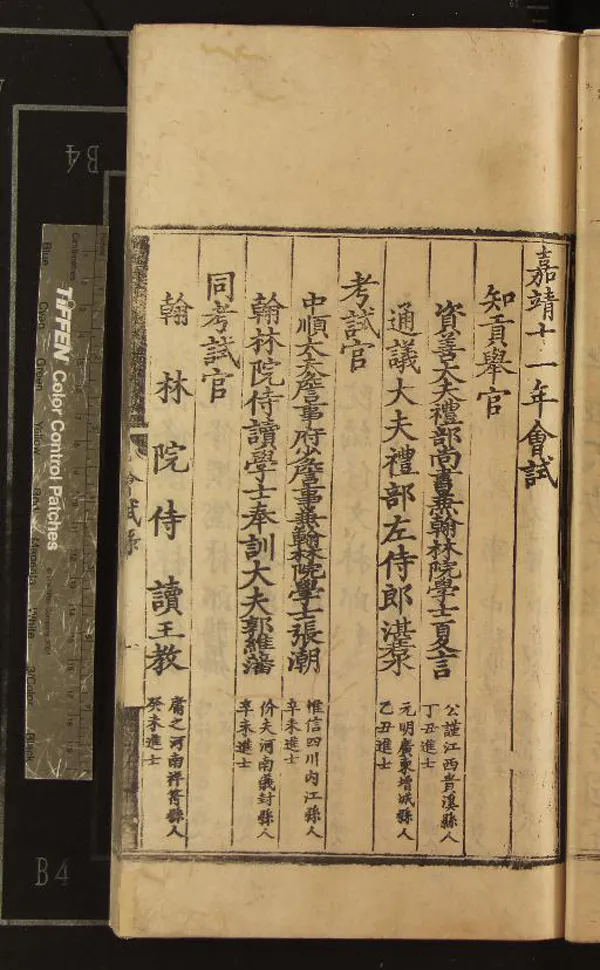 嘉靖十一年會試
知貢舉官
資善大夫禮部尚書兼翰林院學士夏言
公謹江西貴溪縣人
丁丑進士
通議大夫禮部左侍郎湛若水
元明廣東增城縣人
乙丑進士
考試官
中順大夫詹事府少詹事兼翰林院學士張潮
惟信四川内江縣人
辛未進士
翰林院侍讀學士奉訓大夫郭維藩
价夫河南儀封縣人
辛未進士
同考試官
翰林院侍讀王教
庸之河南祥符縣人
癸未進士
會試錄
B4
B4
TIFFEN Color Control Patches
Blue
Green
Yellow
Red
Magenta
White
3/Color
Black
Centimetres